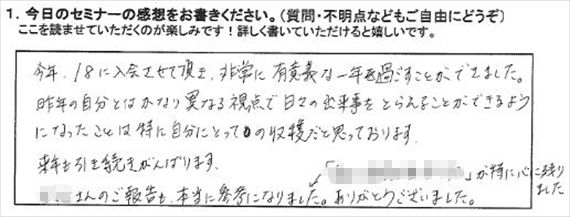 1. 今日のセミナーの感想をお書きください。(質問・不明点などもご自由にどうぞ)
ここを読ませていただくのが楽しみです！詳しく書いていただけると嬉しいです。
今年、1/8に入会させて頂き、非常に有意義な一年を過ごすことができました。
昨年の自分とはかなり異なる視点で日々の出来事をとらえることができるよう
になったことは特に自分にとっての収穫だと思っております。
来年も引き続きがんばります。
「 」が特に心に残りました
さんのご報告も、本当に参考になりました。ありがとうございました。